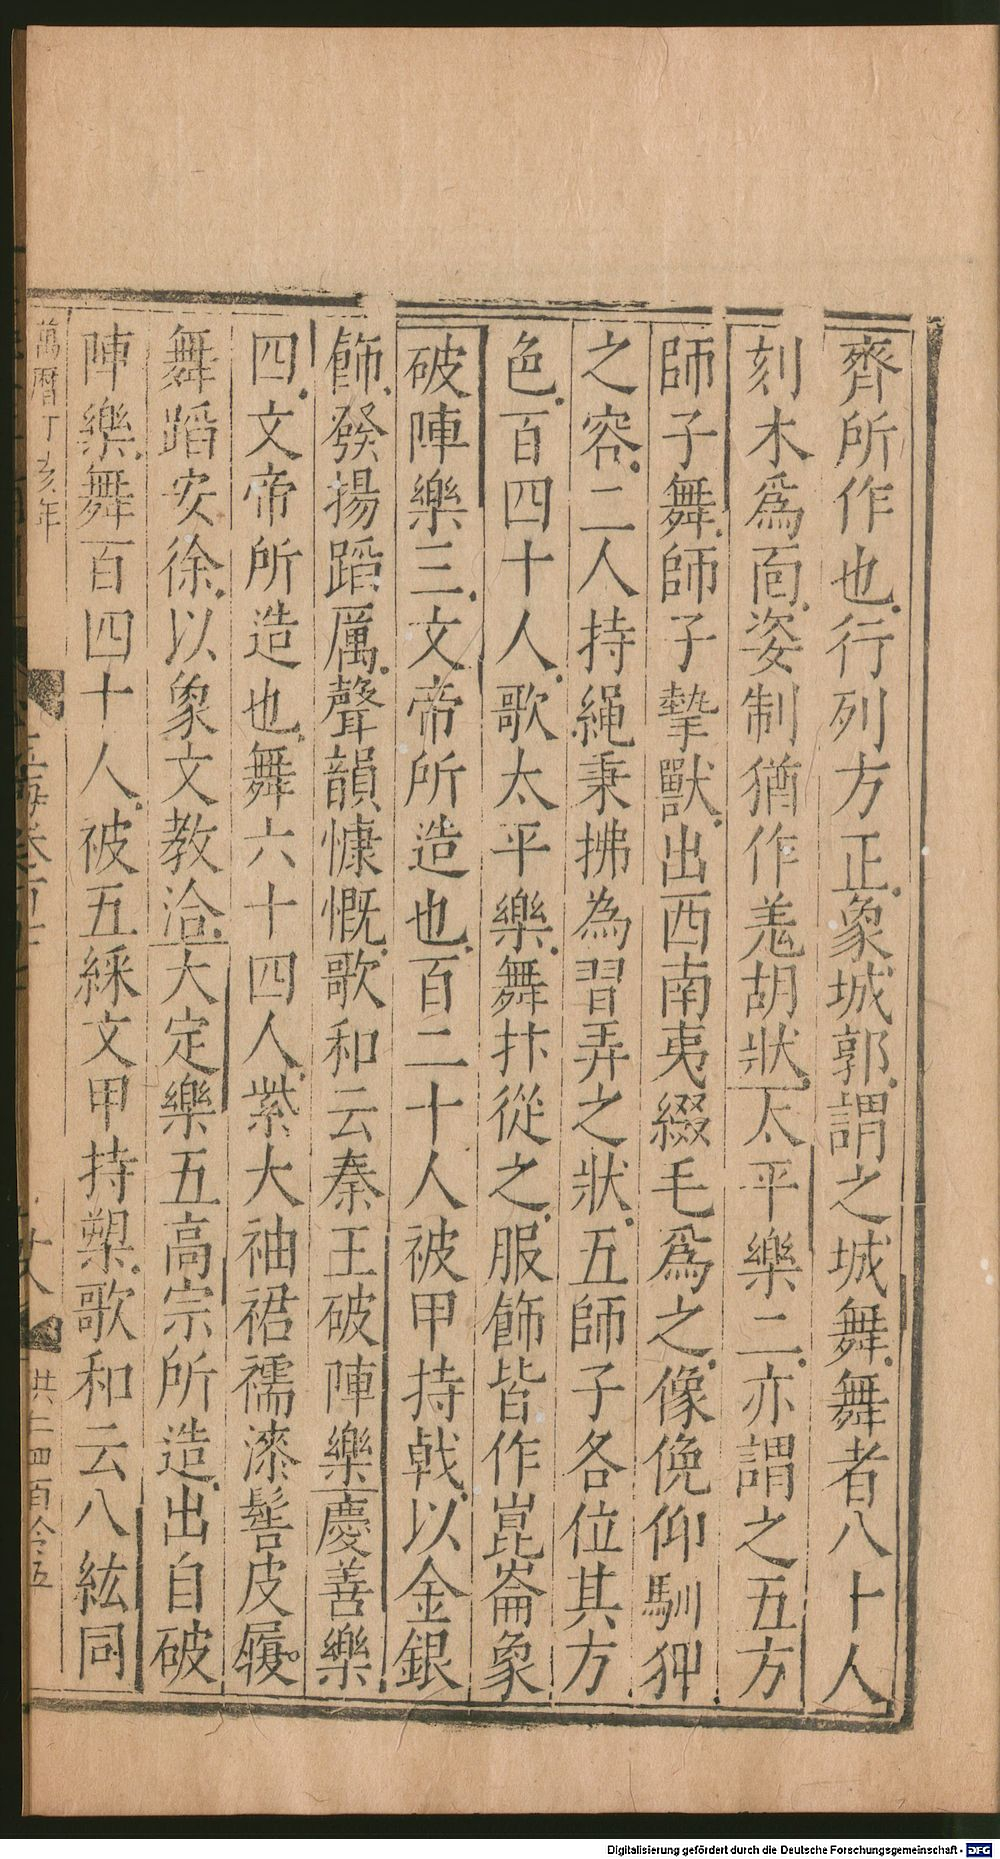 齊所作也行列方正象城郭謂之城舞舞者八十人
刻木爲面姿制猶作羗胡狀太平樂二亦謂之五方
師子舞師子摯獸出西南夷綴毛爲之像俛仰馴狎
之容二人持繩秉拂為習弄之狀五師子各位其方
色百四十人歌太平樂舞抃從之服飾皆作崑崙象
破陣樂三文帝所造也百二十人被甲持戟以金銀
飾發揚蹈厲聲韻慷慨歌和云秦王破陣樂慶善樂
四文帝所造也舞六十四人紫大袖裙襦漆髻皮履
舞蹈安徐以象文教洽大定樂五高宗所造出自破
陣樂舞百四十人被五綵文甲持槊歌和云八紘同
萬曆丁亥年
玉海卷百
Digitalisierung gefördert durch die Deutsche Forschungsgemeinschaft - DFG